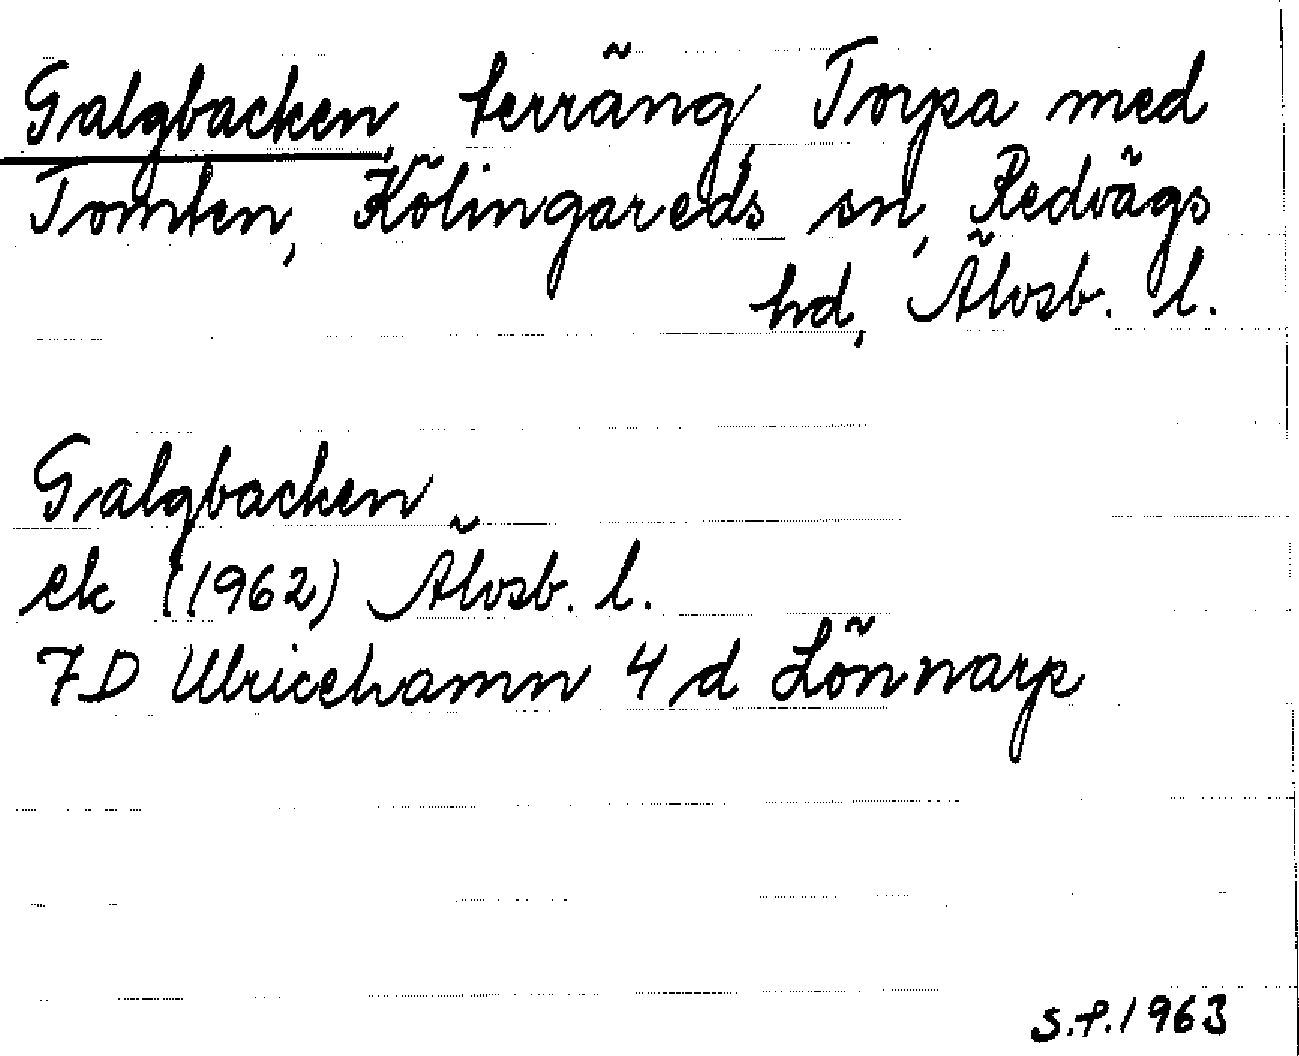 Galgbacken, terräng, Torpa med
Tomten, Kölingareds sn, Redvägs
hd, Älvsb. l.
Galgbacken
ek (1962) Älvsb. l.
7D Ulricehamn 4 d Lönnarp
S.P. 1963